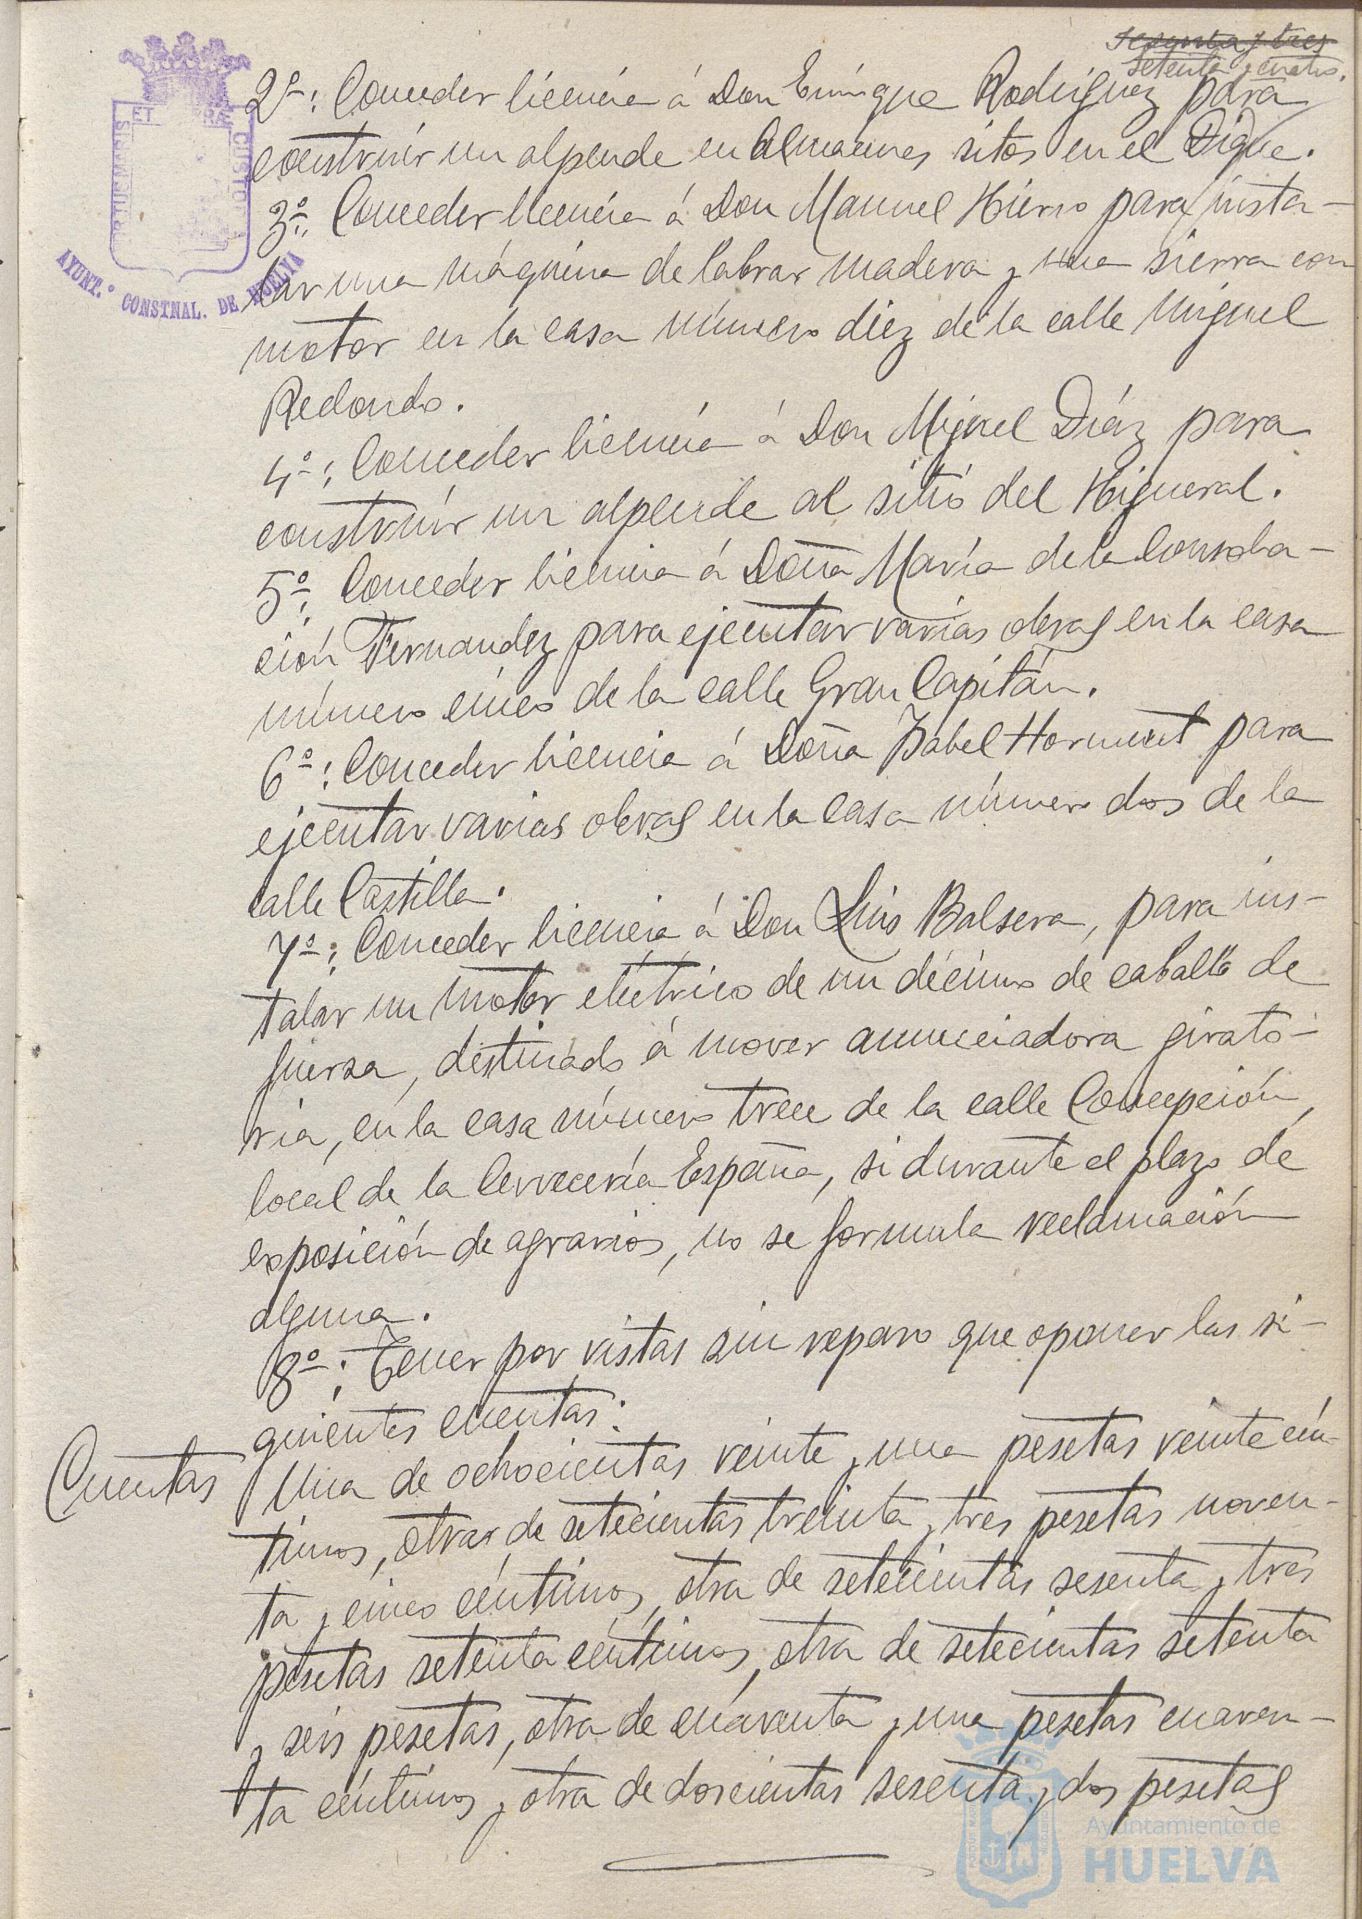 sesenta y tres
setenta y cuatro.
PORTUS MARIS ET TERRÆ CUSTODIA
AYUNT.º CONSTNAL. DE HUELVA
2º: Conceder licencia á Don Enrique Rodríguez para
construir un alpende en Almacenes sitos en el Dique.
3º: Conceder licencia á Don Manuel Hierro para insta-
lar una máquina de labrar madera y una sierra con
motor en la casa número diez de la calle Miguel
Redondo.
4º: Conceder licencia á Don Miguel Díaz para
construir un alpende al sitio del Higueral.
5º: Conceder licencia á Doña María de la Consola-
ción Fernandez para ejecutar varias obras en la casa
número cinco de la calle Gran Capitán.
6º: Conceder licencia á Doña Isabel Hormunt para
ejecutar varias obras en la casa número dos de la
calle Castilla.
7º: Conceder licencia á Don Luis Balsera, para ins-
talar un motor eléctrico de un décimo de caballo de
fuerza, destinado á mover anunciadora girato-
ria, en la casa número trece de la calle Concepción,
local de la Cervecería España, si durante el plazo de
exposición de agravios, no se formula reclamación
alguna.
8º: Tener por vistas sin reparo que oponer las si-
guientes cuentas:
Cuentas
Una de ochocientas veinte y una pesetas veinte cén-
timos, otras de setecientas treinta y tres pesetas noven-
ta y cinco céntimos, otra de setecientas sesenta y tres
pesetas setenta céntimos, otra de setecientas setenta
y seis pesetas, otra de cuarenta y una pesetas cuaren-
ta céntimos y otra de doscientas sesenta y dos pesetas
Ayuntamiento de
HUELVA